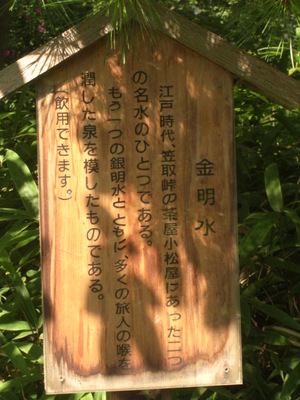 金明水
江戸時代、笠取峠の茶屋小松屋にあった二つ
の名水のひとつである。
もう一つの銀明水とともに、多くの旅人の喉を
潤した泉を模したものである。
（飲用できます。）